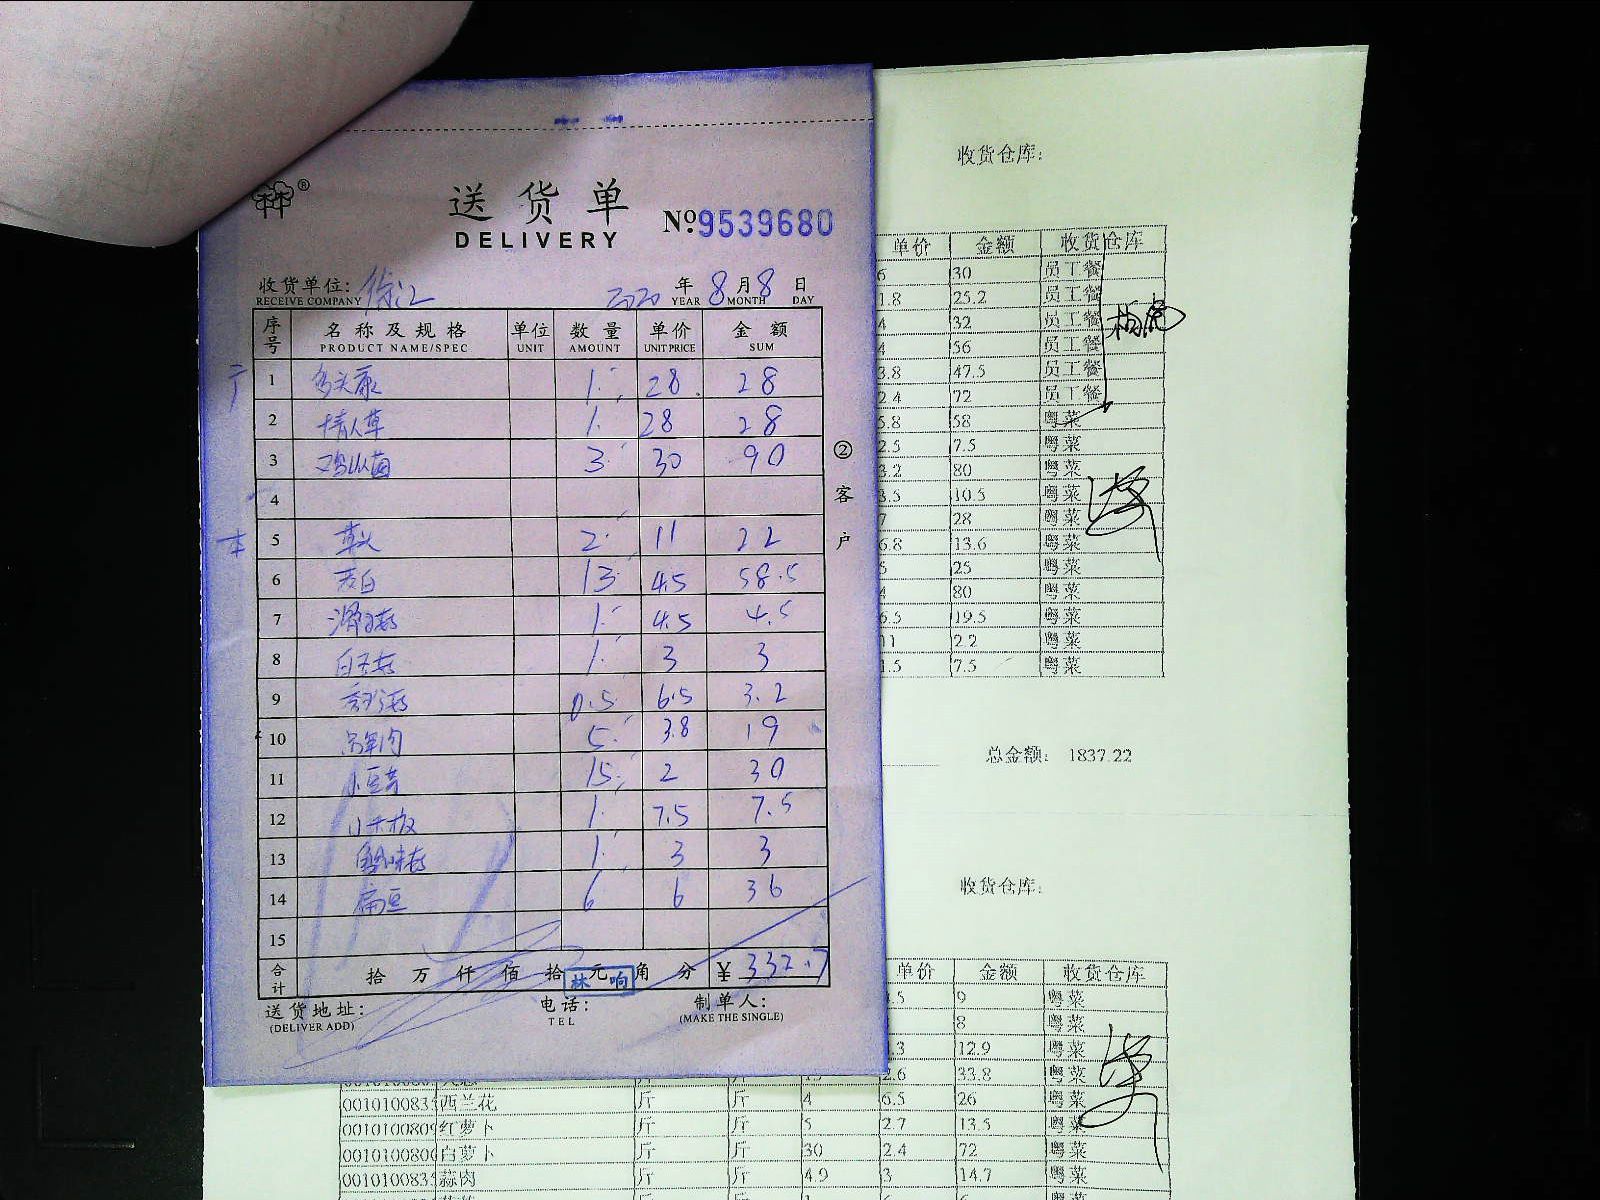 送货单
DELIVERY
№ 9539680
收货单位: 徐汇 2020 年 8 月 8 日
RECEIVE COMPANY YEAR MONTH DAY
序号 名称及规格 单位 数量 单价 金额
PRODUCT NAME/SPEC UNIT AMOUNT UNIT PRICE SUM
1 1 28 28
2 情人草 1 28 28
3 3 30 90
4
5 草头 2 11 22
6 茭白 13 4.5 58.5
7 1 4.5 4.5
8 白玉菇 1 3 3
9 0.5 6.5 3.2
10 5 3.8 19
11 小豆苗 15 2 30
12 1 7.5 7.5
13 1 3 3
14 扁豆 6 6 36
15
合计 拾 万 仟 佰 拾 元 角 分 ¥ 332.7
林响
送货地址: 电话: 制单人:
(DELIVER ADD) TEL (MAKE THE SINGLE)
② 客户
收货仓库:
单价 金额 收货仓库
6 30 员工餐
1.8 25.2 员工餐
4 32 员工餐
4 56 员工餐
3.8 47.5 员工餐
2.4 72 员工餐
5.8 58 粤菜
2.5 7.5 粤菜
3.2 80 粤菜
3.5 10.5 粤菜
7 28 粤菜
6.8 13.6 粤菜
5 25 粤菜
4 80 粤菜
6.5 19.5 粤菜
11 2.2 粤菜
1.5 7.5 粤菜
总金额: 1837.22
收货仓库:
单价 金额 收货仓库
.5 9 粤菜
8 粤菜
.3 12.9 粤菜
2.6 33.8 粤菜
001010083 西兰花 斤 斤 4 6.5 26 粤菜
001010080 红萝卜 斤 斤 5 2.7 13.5 粤菜
001010080 白萝卜 斤 斤 30 2.4 72 粤菜
001010083 蒜肉 斤 斤 4.9 3 14.7 粤菜